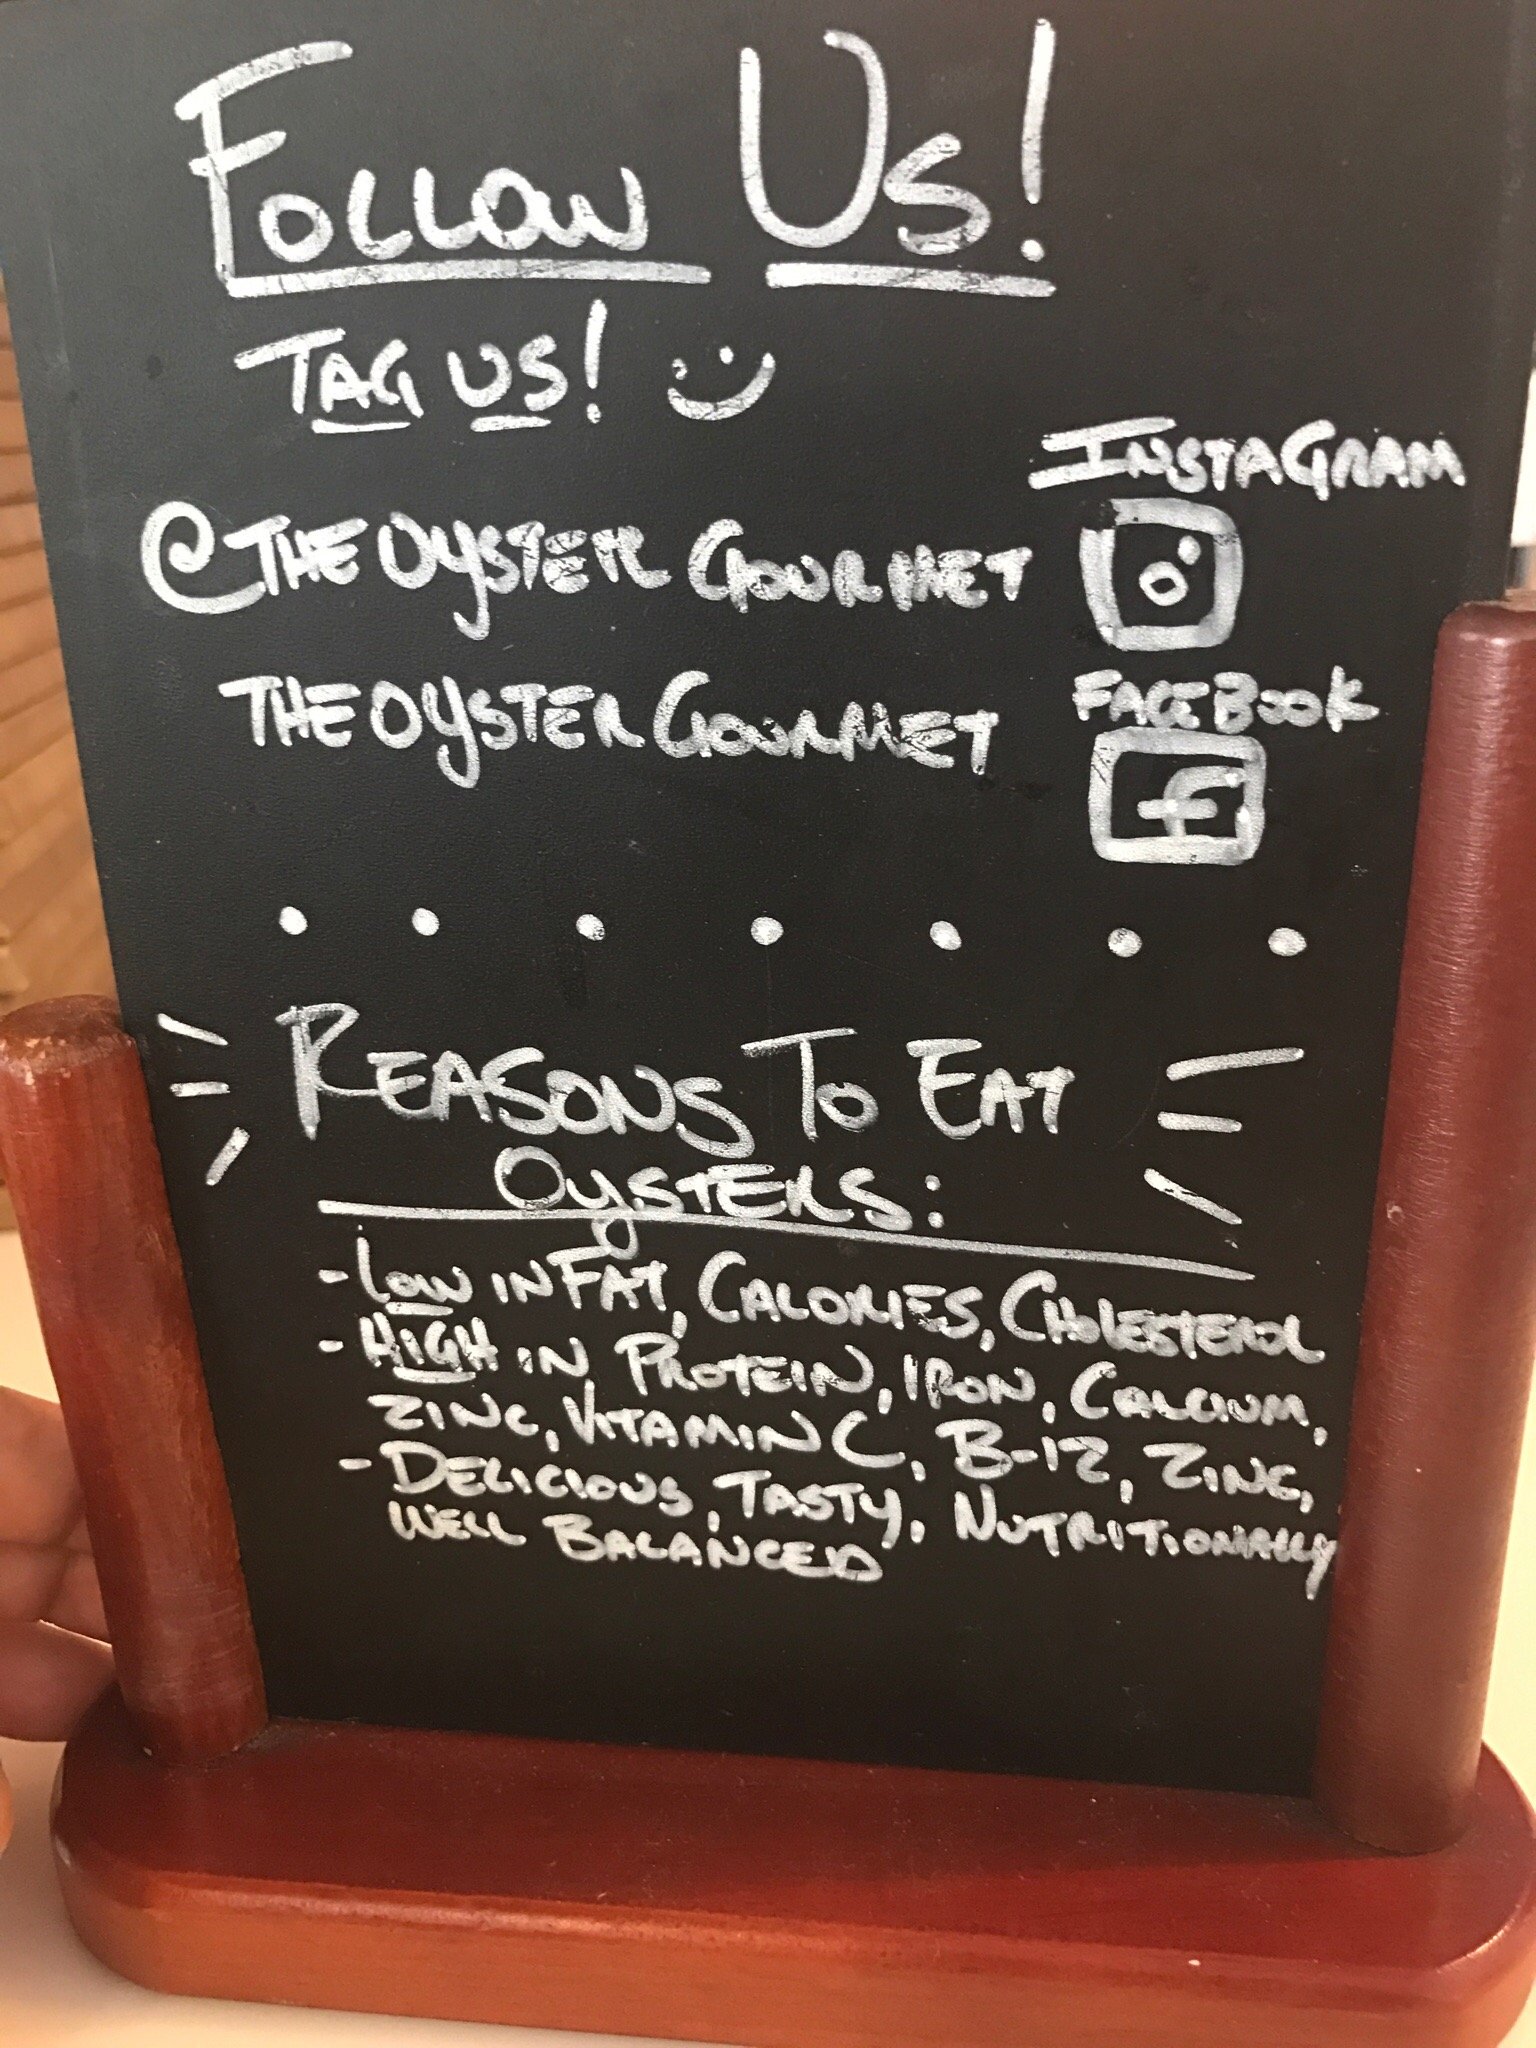 Follow Us!
TAG US!
INSTAGRAM
@THEOYSTERGOURMET
FACEBOOK
THEOYSTERGOURMET
f
REASONS TO EAT
OYSTERS:
- LOW IN FAT, CALORIES, CHOLESTEROL
- HIGH IN PROTEIN, IRON, CALCIUM,
ZINC, VITAMIN C, B-12, ZINC,
- DELICIOUS, TASTY, NUTRITIONALLY
WELL BALANCED